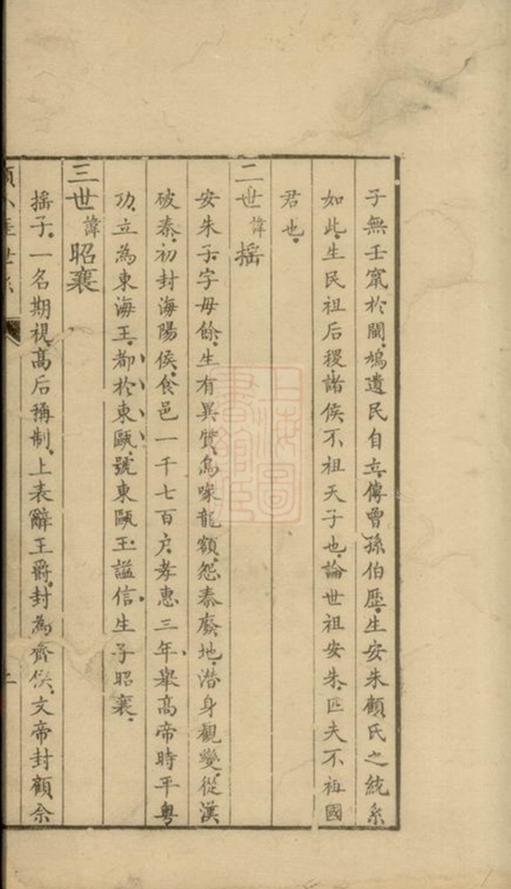 子無壬竄於閩鳩遺民自立傳曾孫伯歷生安朱顧氏之統系
如此生民祖后稷諸侯不祖天子也論世祖安朱匹夫不祖國
君也
二世諱搖
安朱子字毋餘生有異質鳥喙龍顙怨秦廢地潛身觀變從漢
破秦初封海陽侯食邑一千七百戶孝惠三年舉高帝時平粵
功立為東海王都於東甌號東甌王謚信生子昭襄
三世諱昭襄
搖子一名期視高后稱制上表辭王爵封為齊侯文帝封顧余
上海圖書館藏